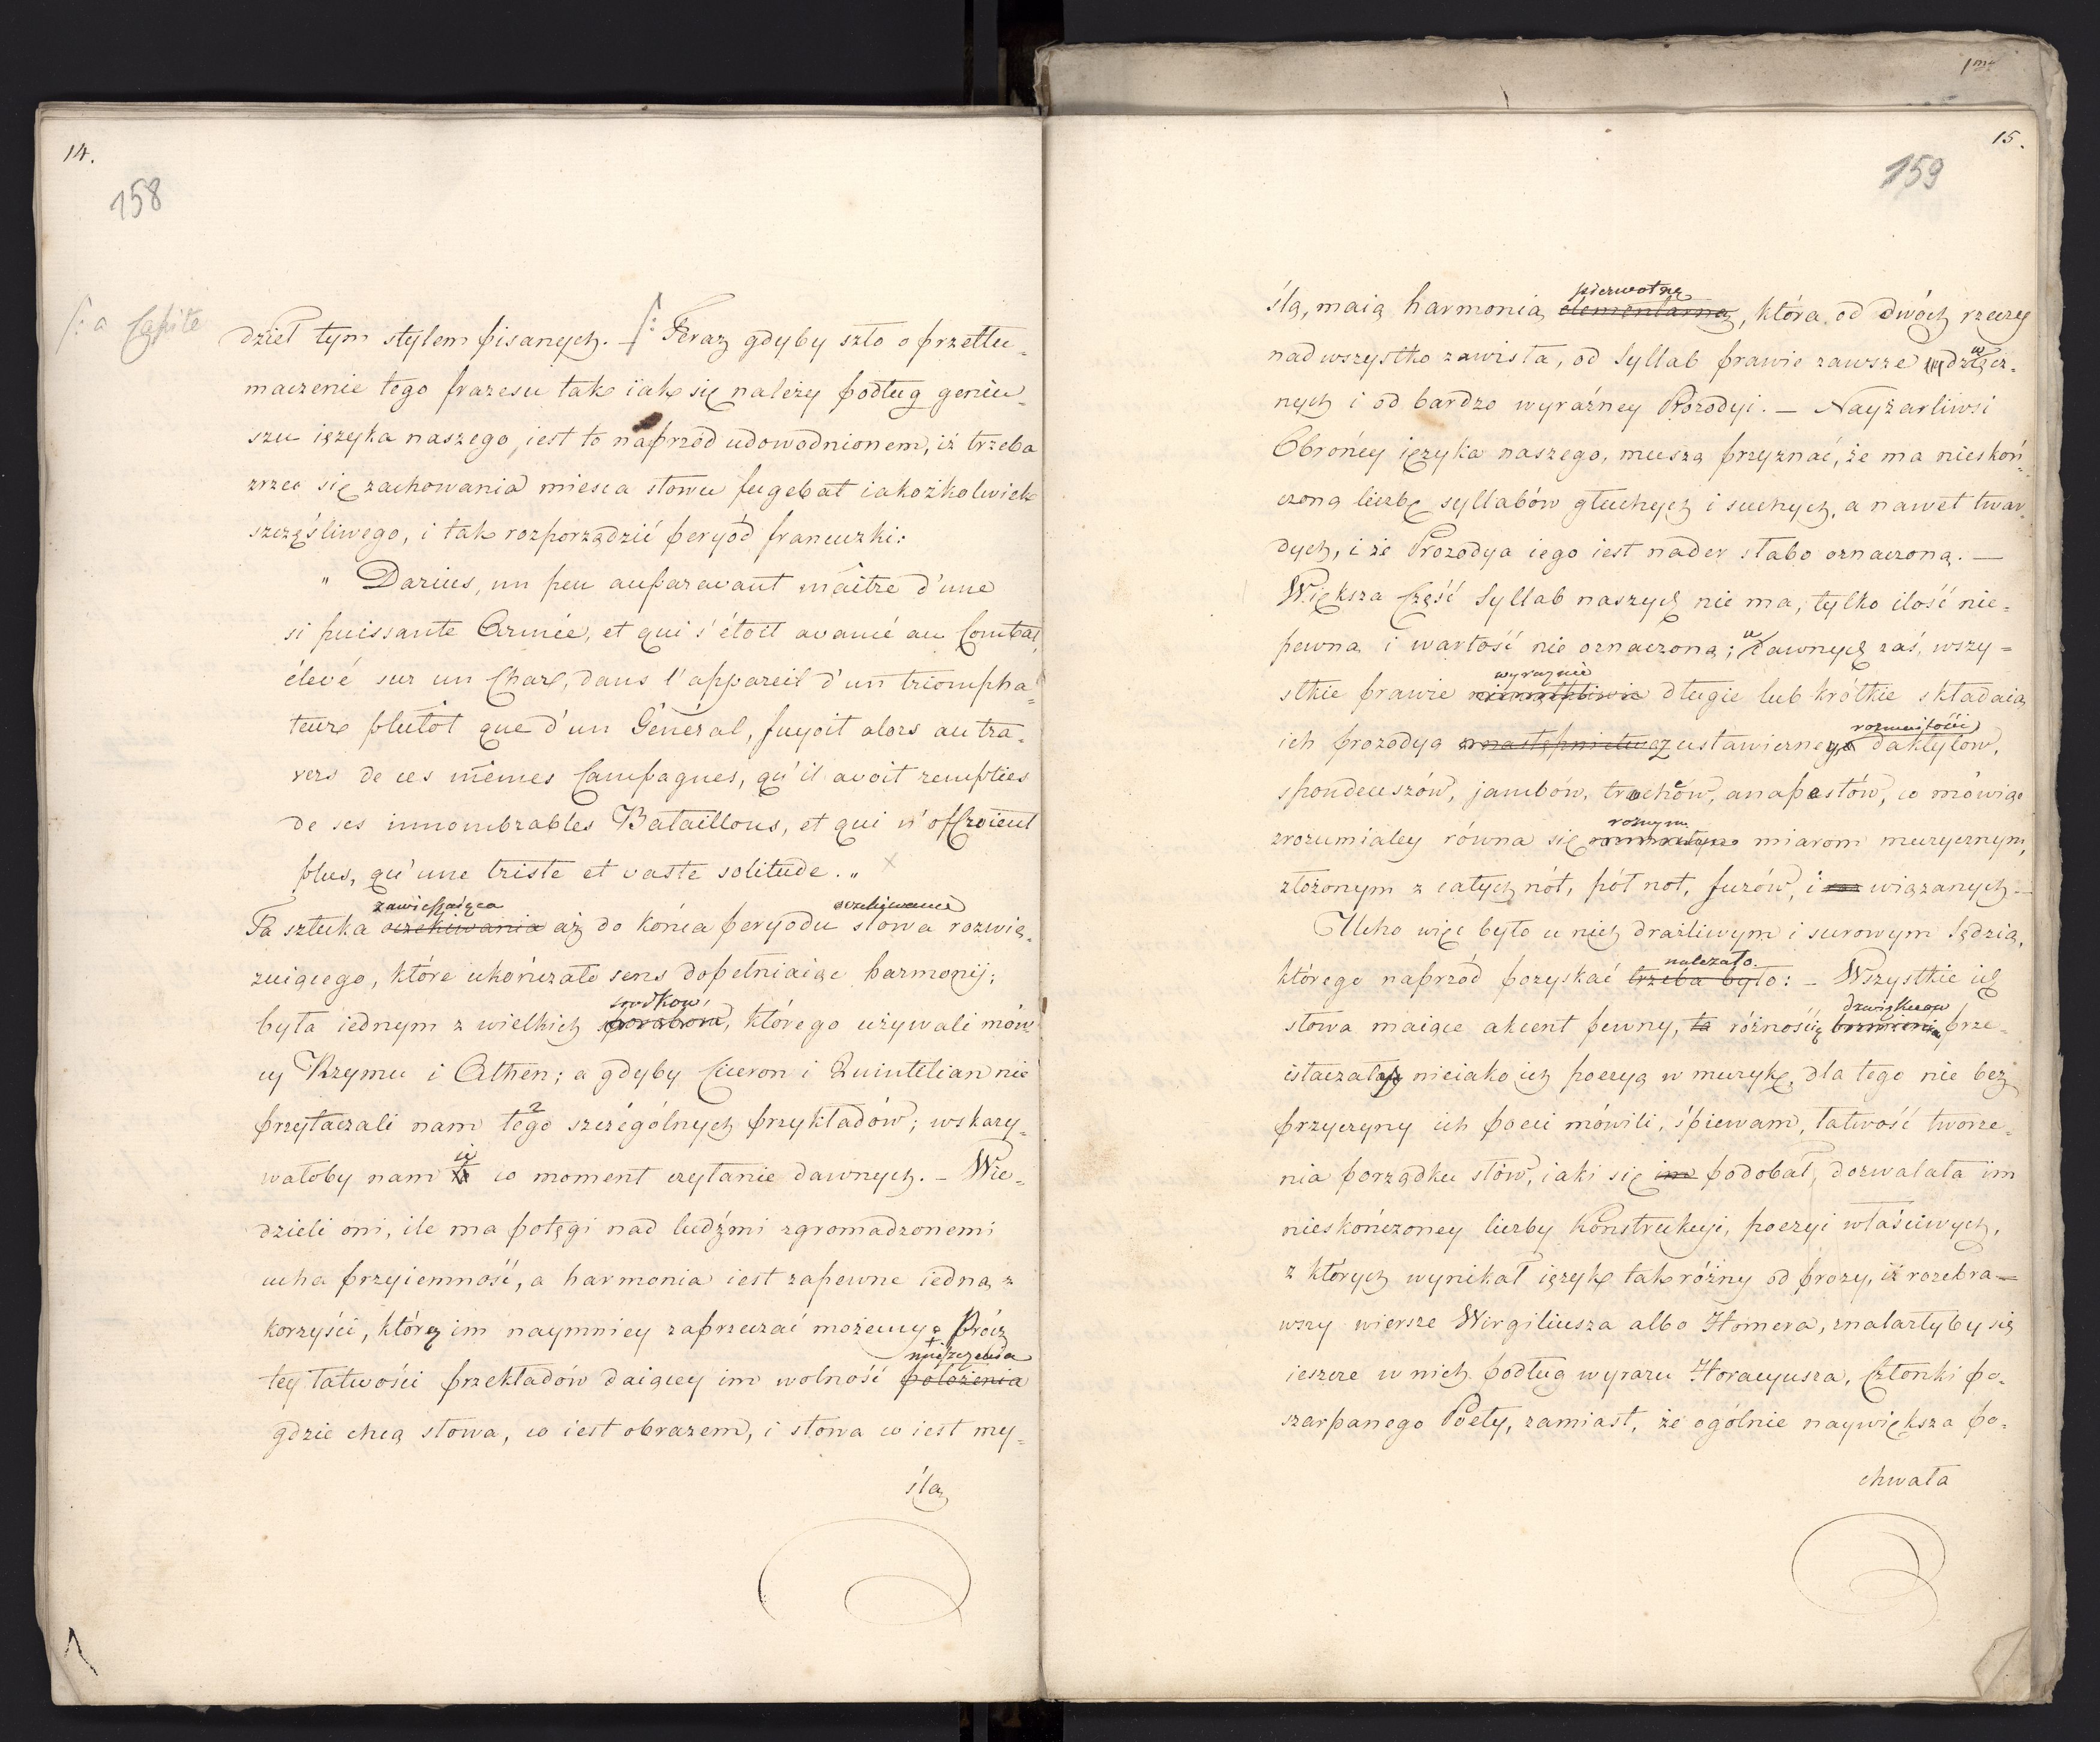 14.
158
/: a Capite
dzieł tym stylem pisanych. — /: Teraz gdyby szło o przetłu-
maczenie tego frazesu tak iak się należy podług geniu-
szu ięzyka naszego, iest to naprzód udowodnionem, iż trzeba
zrzec się zachowania mieysca słowu fugebat iakożkolwiek
szczęśliwego, i tak rozporządzić peryód francuzki:
" Darius, un peu auparavant maître d'une
si puissante Armée, et qui s'étoit avancé au Combat,
élevé sur un Char, dans l'appareil d'un triompha-
teur plutôt que d'un Général, fuyoit alors au tra-
vers de ces mêmes Campagnes, qu'il avoit remplies
de ses innombrables Bataillons, et qui n'offroient
plus, qu'une triste et vaste solitude. „ ×
zawieszaiąca oczekiwanie
Ta sztuka oczekiwania aż do końca peryodu słowa rozwią-
zuiącego, które ukończało sens dopełniaiąc harmonij;
srodkow,
była iednym z wielkich sposobów, którego używali mów-
cy Rzymu i Athen; a gdyby Ciceron i Quintilian nie
przytaczali nam tego szczególnych przykładów; wskazy-
wałoby nam ie co moment czytanie dawnych. — Wie-
dzieli oni, ile ma potęgi nad ludźmi zgromadzonemi
ucha przyiemność, a harmonia iest zapewne iedną z
korzyści, którey im naymniey zaprzeczać możemy. Prócz
mieszczenia
tey łatwości przekładów daiącey im wolność położenia
gdzie chcą słowa, co iest obrazem, i słowa co iest my-
ślą
15.
159
pierwotną
ślą, maią harmonią elementarną, która od dwóch rzeczy
nadwszystko zawisła, od Syllab prawie zawsze wdzięcz-
nych i od bardzo wyraźney Prozodyi. — Nayżarliwsi
Obrońcy ięzyka naszego, muszą przyznać, że ma nieskoń-
czoną liczbę syllabów głuchych i suchych, a nawet twar-
dych, i że Prozodya iego iest nader słabo oznaczoną. —
Większa część Syllab naszych nie ma, tylko ilość nie-
pewną i wartość nie oznaczoną; u dawnych zaś, wszy-
wyraznie
stkie prawie niewątpliwie długie lub krótkie składaią
rozmaitości
ich prozodyą z następnictwa ustawiczney daktylów,
spondeuszów, jambów, trocheów, anapestów, co mówiąc
roznym
zrozumialey równa się rozmaitym miarom muzycznym,
złożonym z całych nót, pół not, fuzów, i wiązanych —
Ucho więc było u nich drażliwym i surowym Sędzią,
należało.
którego naprzód pozyskać trzeba było: — Wszystkie ich
dzwiękuow
słowa maiące akcent pewny, ta różnością brzmienia prze-
istaczały nieiako ich poezyą w muzykę, dla tego nie bez
przyczyny ich poeci mówili, śpiewam, łatwość tworze-
nia porządku słów, iaki się im podobał, dozwalała im
nieskończoney liczby Konstrukcyi, poezyi właściwych,
z których wynikał ięzyk tak różny od prozy, iż rozebra-
wszy wiersze Wirgiliusza albo Homera, znalazłyby się
ieszcze w nich podług wyrazu Horacyusza, członki po-
szarpanego Poety, zamiast, że ogólnie naywiększa po-
chwała